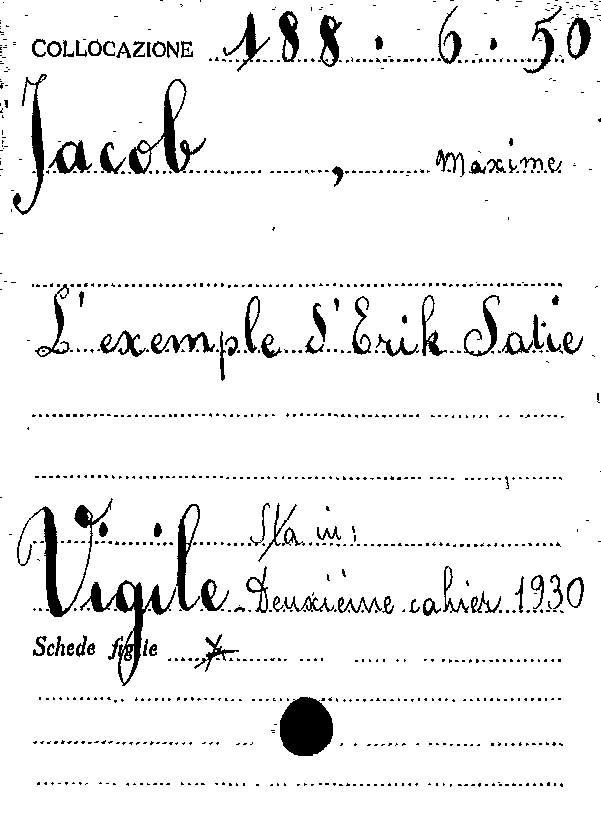 COLLOCAZIONE 188.6.50
Jacob, Maxime
L'exemple d'Erik Satie
Sta in:
Vigile - Deuxième cahier 1930
Schede figlie